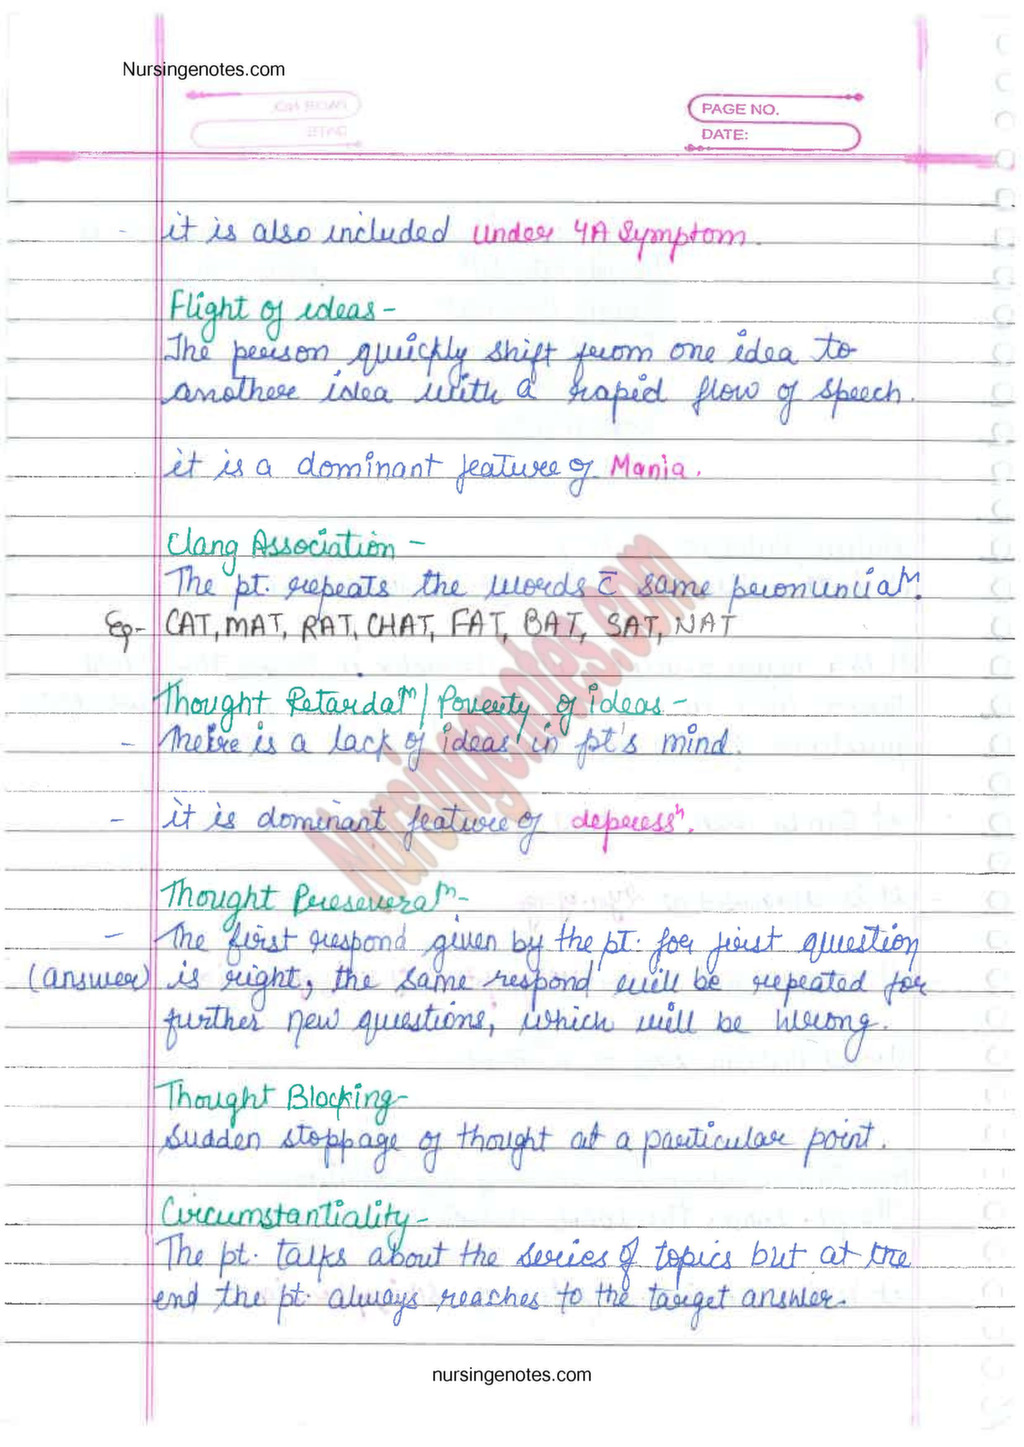 Nursingenotes.com
PAGE NO.
DATE:
- it is also included under 4A Symptom.
Flight of ideas -
The person quickly shift from one idea to
another idea with a rapid flow of speech.
it is a dominant feature of Mania.
Clang Association -
The pt. repeats the words c̄ same pronunciaⁿ.
Eg- CAT, MAT, RAT, CHAT, FAT, BAT, SAT, NAT
Thought Retardaⁿ / Poverty of ideas -
- There is a lack of ideas in pt's mind.
- it is dominant feature of depressⁿ.
Thought Perseveraⁿ -
- The first respond given by the pt. for first question
(answer) is right, the same respond will be repeated for
further new questions, which will be wrong.
Thought Blocking-
Sudden stoppage of thought at a particular point.
Circumstantiality -
The pt. talks about the series of topics but at the
end the pt. always reaches to the target answer.
Nursingenotes.com
nursingenotes.com